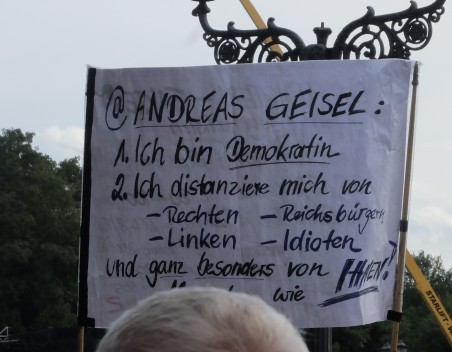 @ ANDREAS GEISEL:
1. Ich bin Demokratin
2. Ich distanziere mich von
- Rechten - Reichsbürgern
- Linken - Idioten
und ganz besonders von
wie IHNEN!
STARLIFT